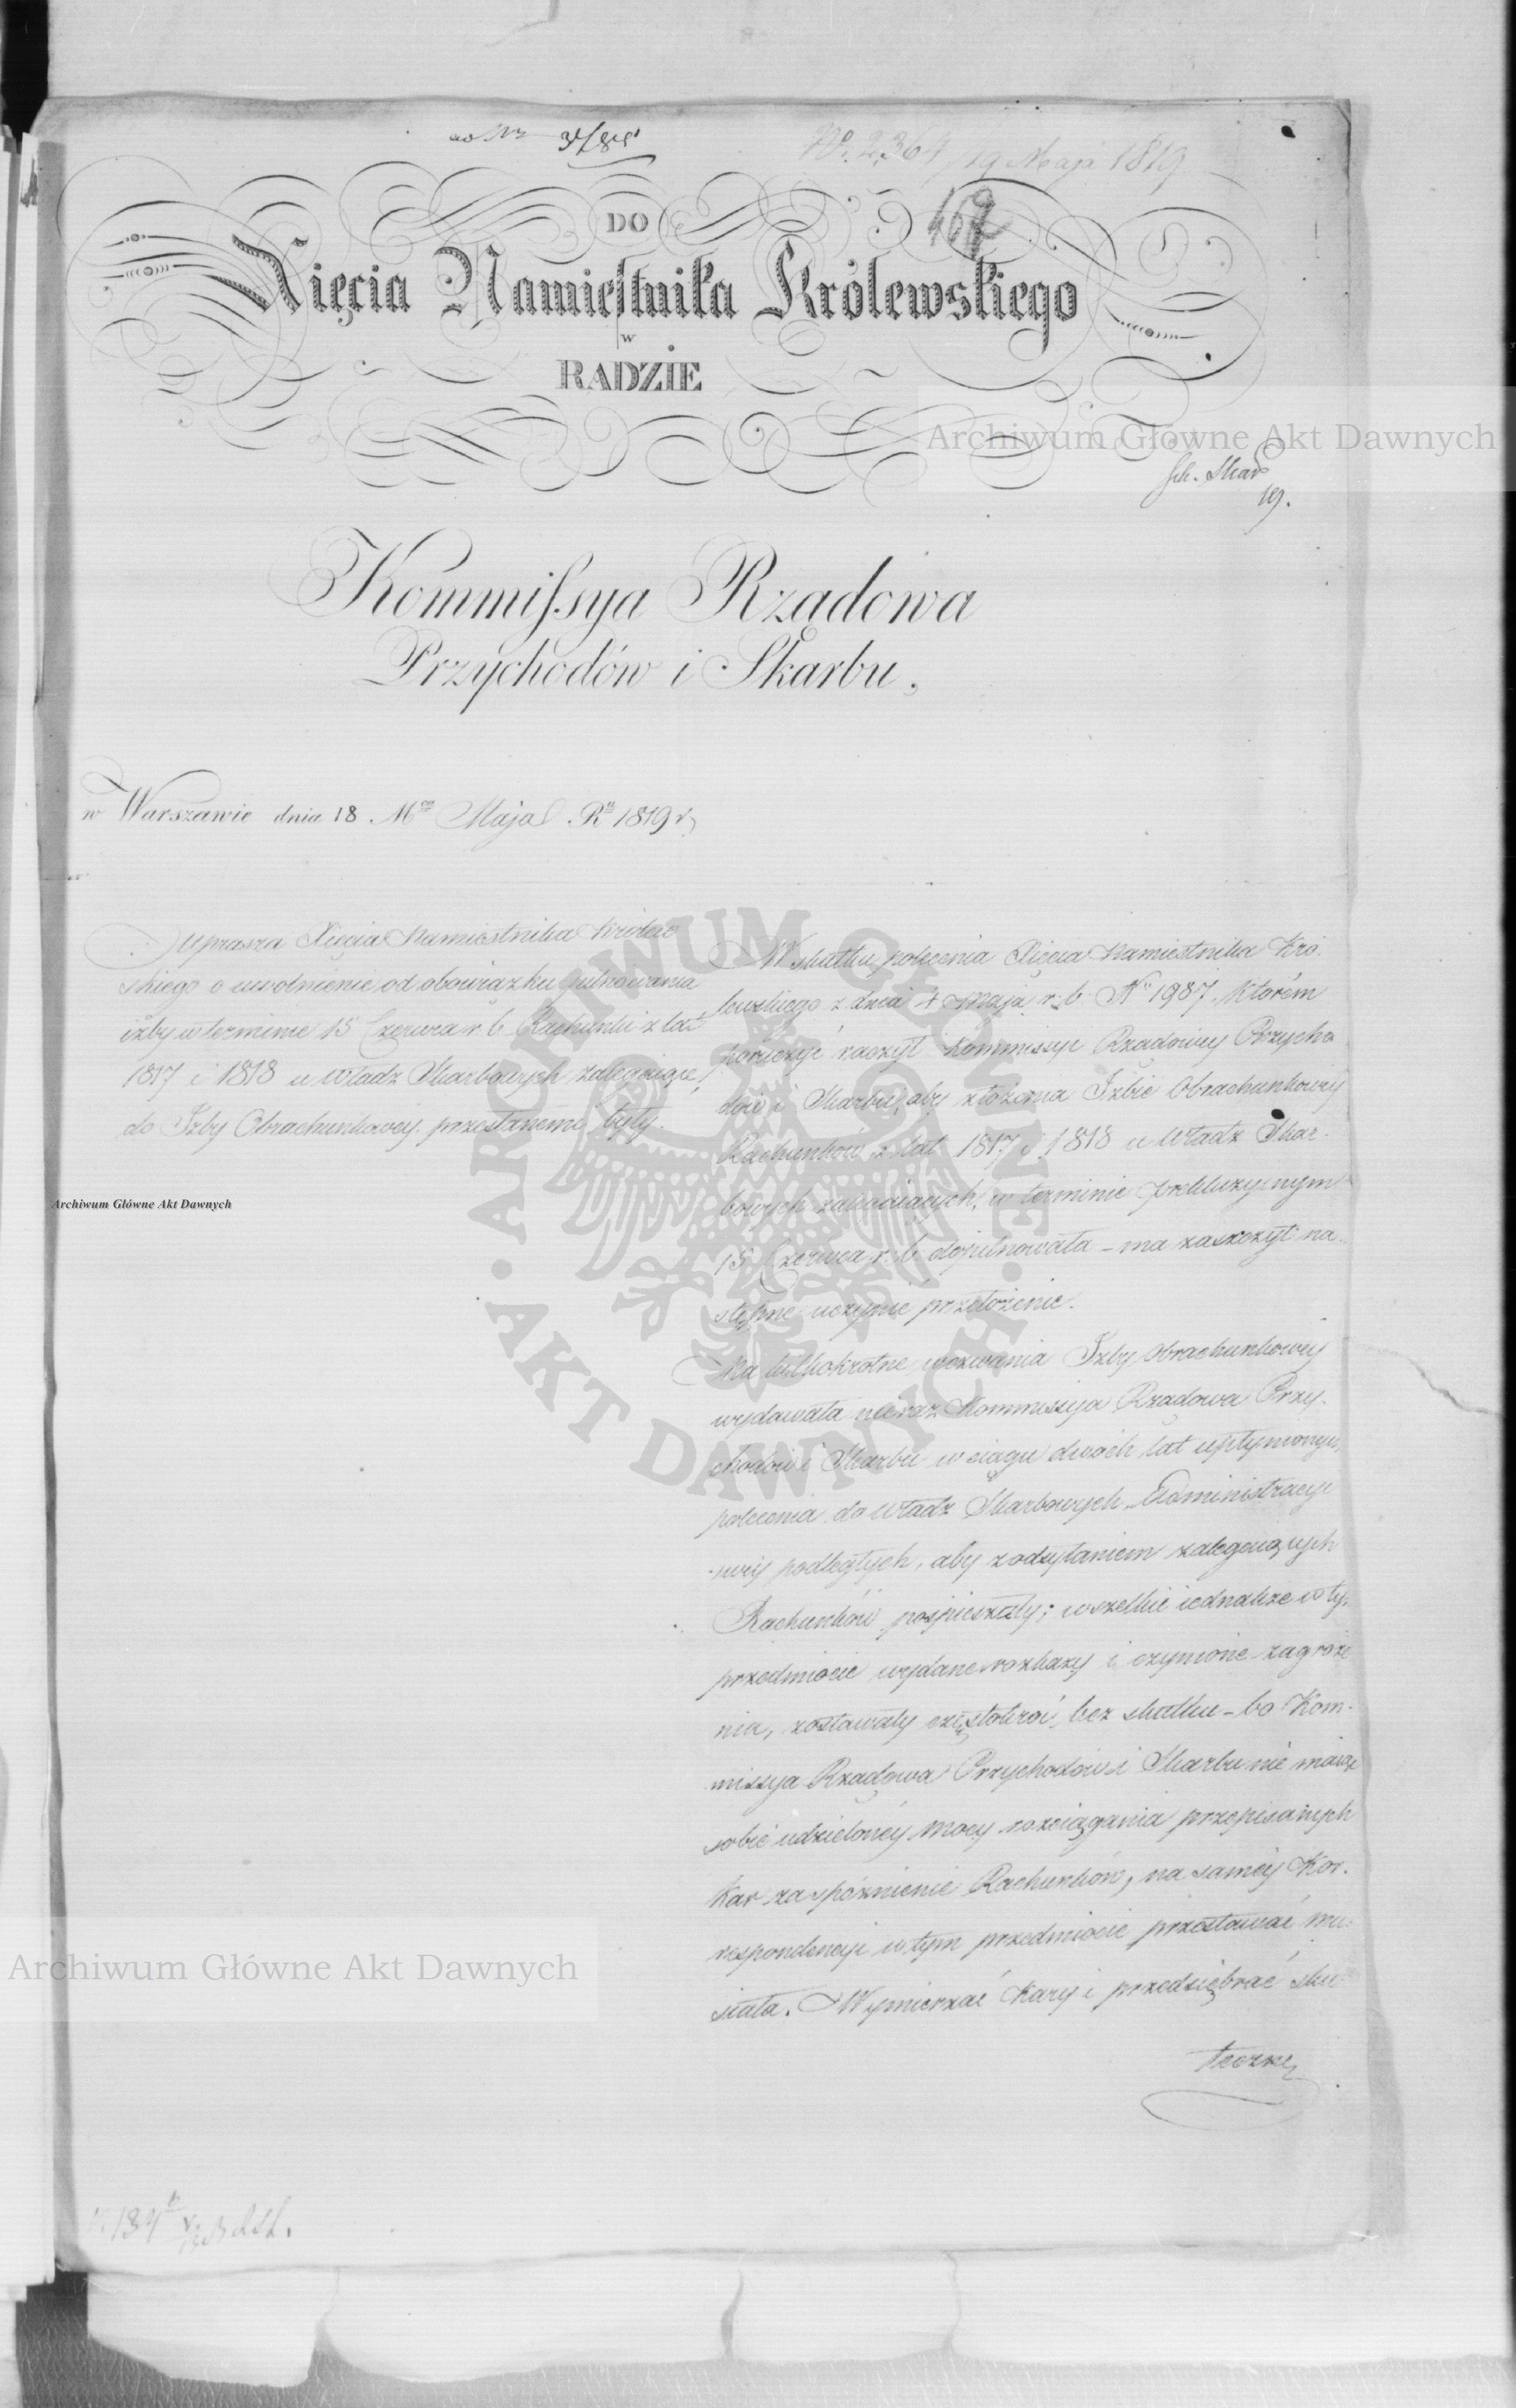 No. 2364 / 19 Maja 1819
DO
Xięcia Namiestnika Królewskiego
w
RADZIE
Archiwum Główne Akt Dawnych
Kommissya Rządowa
Przychodów i Skarbu,
w Warszawie dnia 18 Mca Maja Ru 1819 r
Uprasza Xięcia Namiestnika Królew
skiego o uwolnienie od obowiązku pilnowania
iżby w terminie 15 Czerwca r. b. Rachunki z lat
1817 i 1818 u Władz Skarbowych zalegaiące,
do Izby Obrachunkowey przesłanemi były.
W skutku polecenia Xięcia Namiestnika Kró
lewskiego z dnia 4 Maja r. b. No 1987. którém
poruczyć raczył Kommissyi Rządowey Przycho
dów i Skarbu, aby złożenia Izbie Obrachunkowéy
Rachunków z lat 1817 i 1818 u Władz Skar-
bowych zalegaiących, w terminie prekluzyinym
15 Czerwca r. b. dopilnowała – ma zaszczyt na-
stępne uczynić przełożenie.
Na kilkokrotne wezwania Izby Obrachunkowéy
wydawała nieraz Kommissya Rządowa Przy-
chodów i Skarbu w ciągu dwóch lat upłynionych
polecenia do Władz Skarbowych Administracyi
swéy podległych, aby z odsyłaniem zalegaiących
Rachunków pospieszały; wszelkie iednakże w tym
przedmiocie wydane rozkazy i czynione zagroże
nia, zostawały częstokroć bez skutku – bo Kom-
missya Rządowa Przychodów i Skarbu nie maiąc
sobie udzielonéy mocy rozciągania przepisanych
kar za spóźnienie Rachunków, na saméy Kor-
respondencyi w tym przedmiocie przestawać mu-
siała. Wymierzać kary i przedsiębrać sku
teczne
Archiwum Główne Akt Dawnych
Archiwum Główne Akt Dawnych
ARCHIWUM GŁÓWNE
AKT DAWNYCH